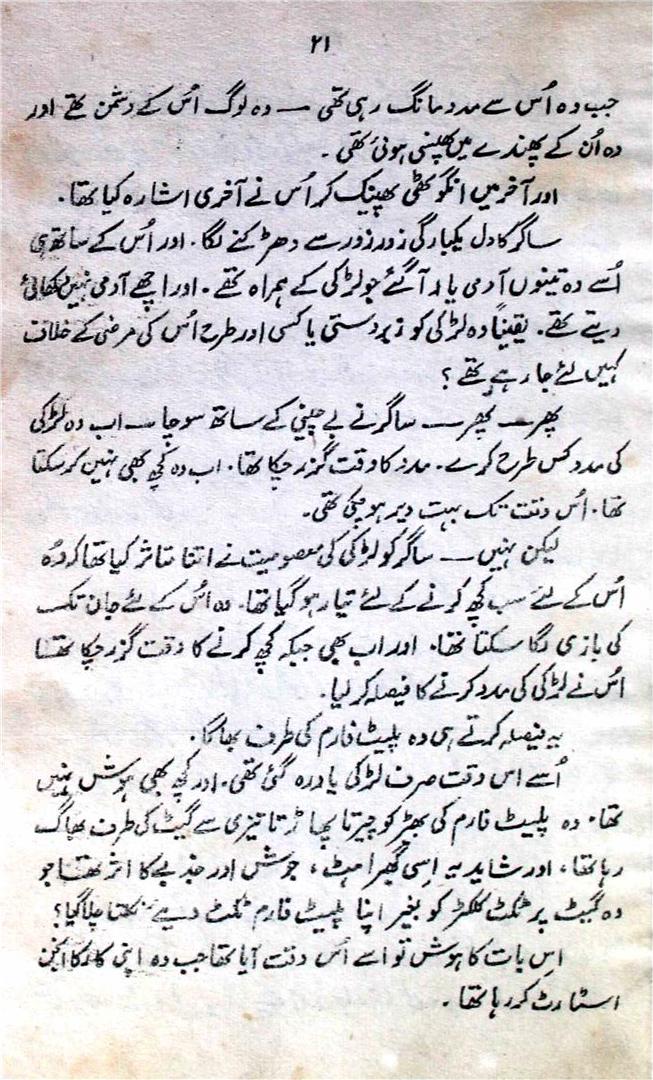 ۲۱
جب وہ اُس سے مدد مانگ رہی تھی — وہ لوگ اُس کے دشمن تھے اور
وہ اُن کے پھندے میں پھنسی ہوئی تھی ۔
اور آخر میں انگوٹھی پھینک کر اُس نے آخری اشارہ کیا تھا.
ساگر کا دل یکبارگی زور زور سے دھڑکنے لگا. اور اُس کے ساتھ ہی
اُسے وہ تینوں آدمی یاد آ گئے جو لڑکی کے ہمراہ تھے . اور اچھے آدمی نہیں دکھائی
دیتے تھے. یقیناً وہ لڑکی کو زبردستی یا کسی اور طرح اُس کی مرضی کے خلاف
کہیں لئے جا رہے تھے ؟
پھر — پھر — ساگر نے بے چینی کے ساتھ سوچا — اب وہ لڑکی
کی مدد کس طرح کرے . مدد کا وقت گزر چکا تھا. اب وہ کچھ بھی نہیں کر سکتا
تھا. اُس وقت تک بہت دیر ہو چکی تھی.
لیکن نہیں — ساگر کو لڑکی کی معصومیت نے اتنا متاثر کیا تھا کہ وہ
اُس کے لئے سب کچھ کرنے کے لئے تیار ہو گیا تھا. وہ اُس کے لئے جان تک
کی بازی لگا سکتا تھا. اور اب بھی جبکہ کچھ کرنے کا وقت گزر چکا تھا
اُس نے لڑکی کی مدد کرنے کا فیصلہ کر لیا.
یہ فیصلہ کرتے ہی وہ پلیٹ فارم کی طرف بھاگا.
اُسے اس وقت صرف لڑکی یاد رہ گئی تھی. اور کچھ بھی ہوش نہیں
تھا. وہ پلیٹ فارم کی بھیڑ کو چیرتا پھاڑتا تیزی سے گیٹ کی طرف بھاگ
رہا تھا، اور شاید یہ اِسی گھبراہٹ، جوش اور جذبے کا اثر تھا جو
وہ گیٹ پر ٹکٹ کلکٹر کو بغیر اپنا پلیٹ فارم ٹکٹ دیے نکلتا چلا گیا؟
اِس بات کا ہوش تو اسے اُس وقت آیا تھا جب وہ اپنی کار کا انجن
اسٹارٹ کر رہا تھا ۔